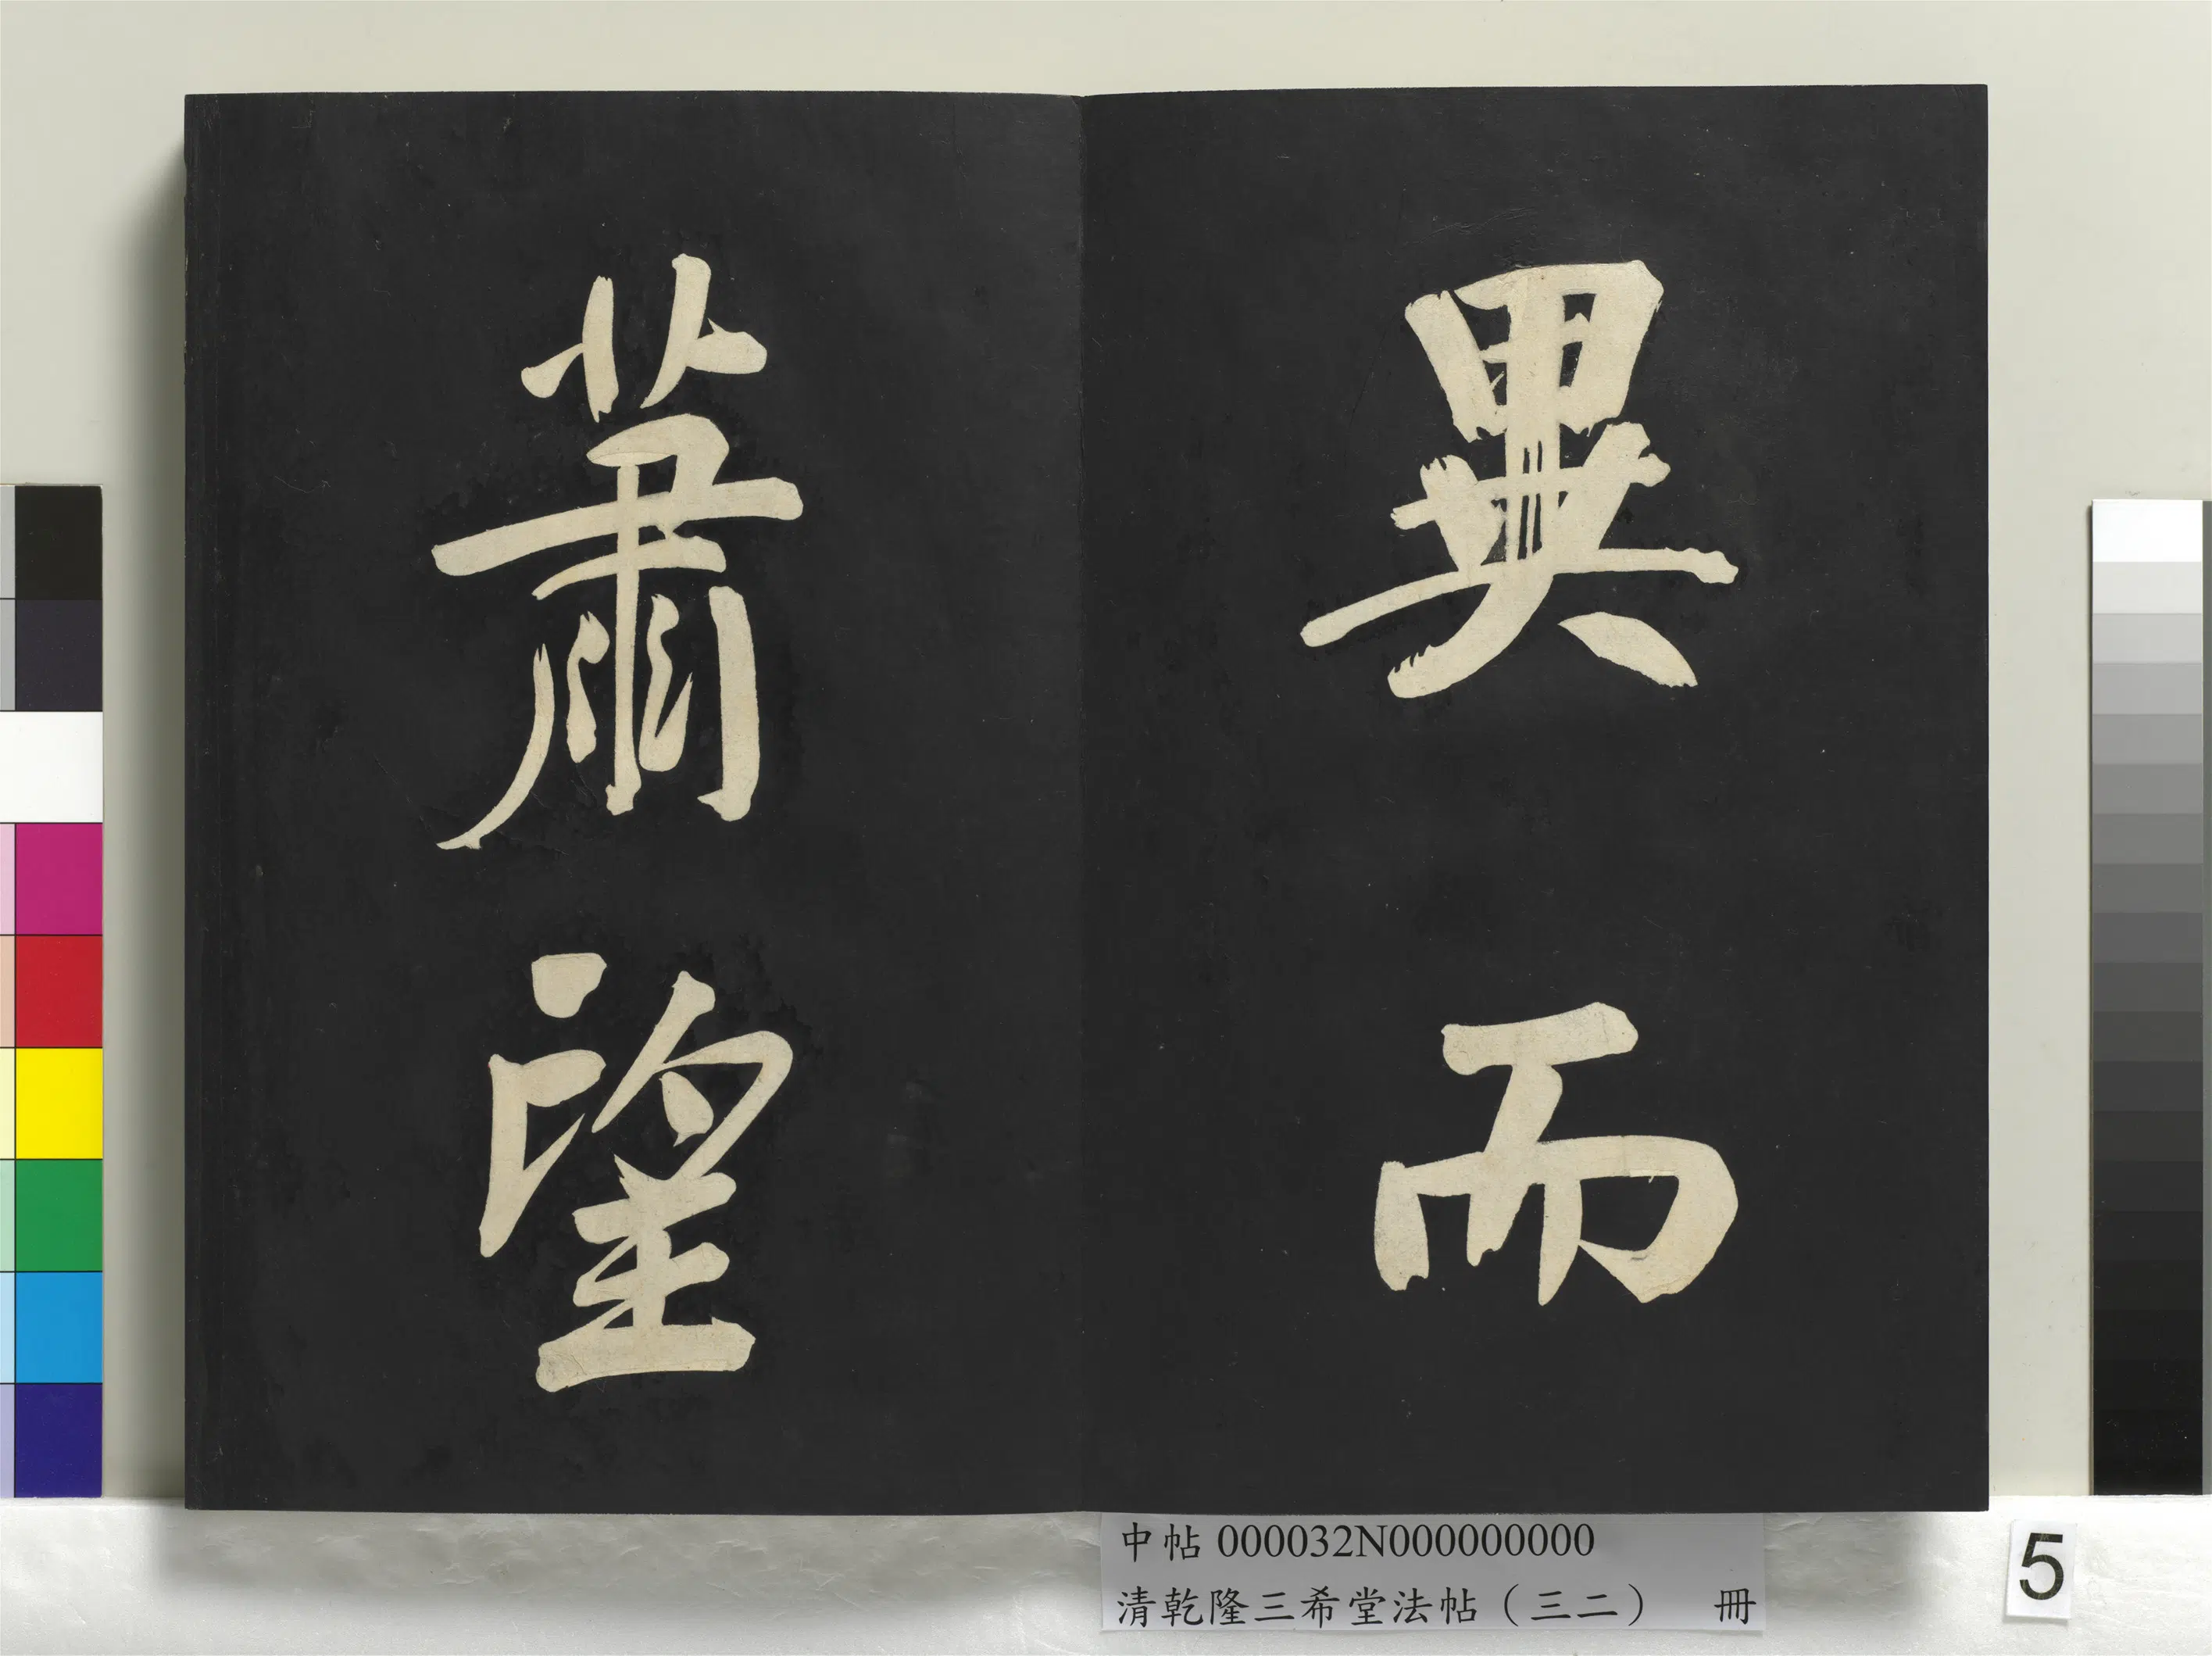 異而
蕭望
中帖 000032N000000000
清乾隆三希堂法帖（三二） 冊
5